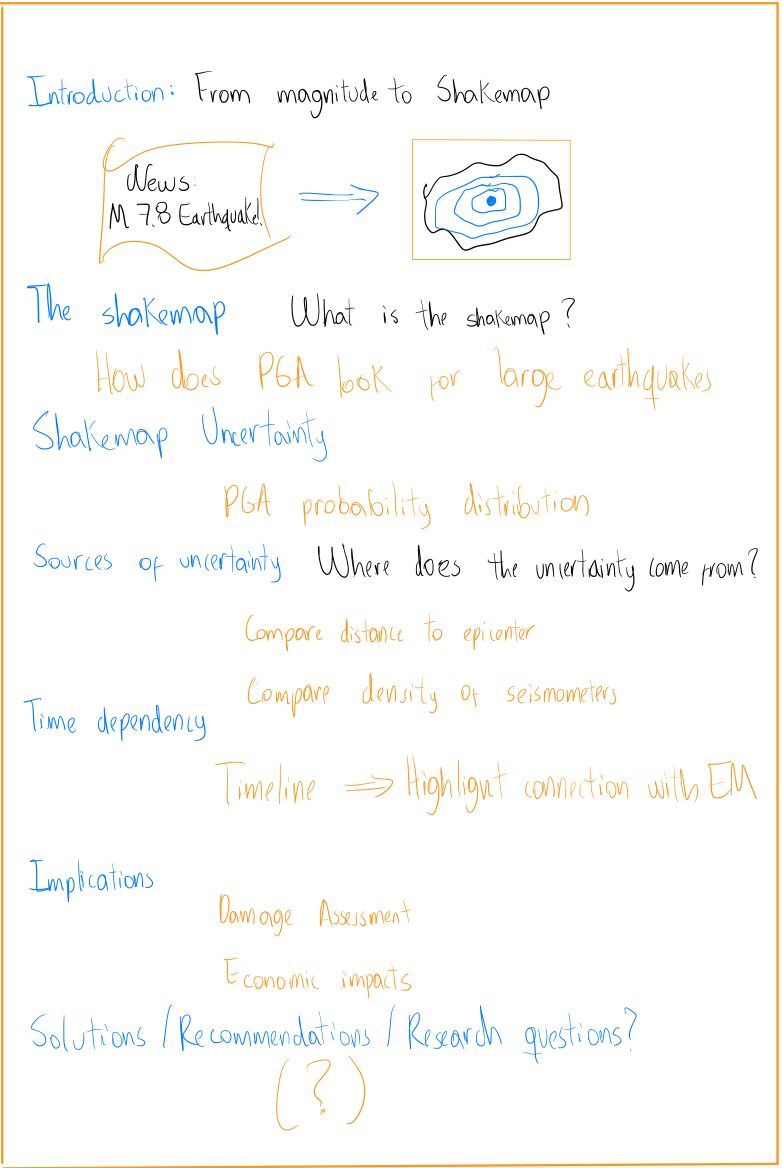 Introduction: From magnitude to Shakemap
News:
M 7.8 Earthquake!
The shakemap What is the shakemap?
How does PGA look for large earthquakes
Shakemap Uncertainty
PGA probability distribution
Sources of uncertainty Where does the uncertainty come from?
Compare distance to epicenter
Compare density of seismometers
Time dependency
Timeline ⇒ Highlight connection with EM
Implications
Damage Assessment
Economic impacts
Solutions / Recommendations / Research questions?
(?)